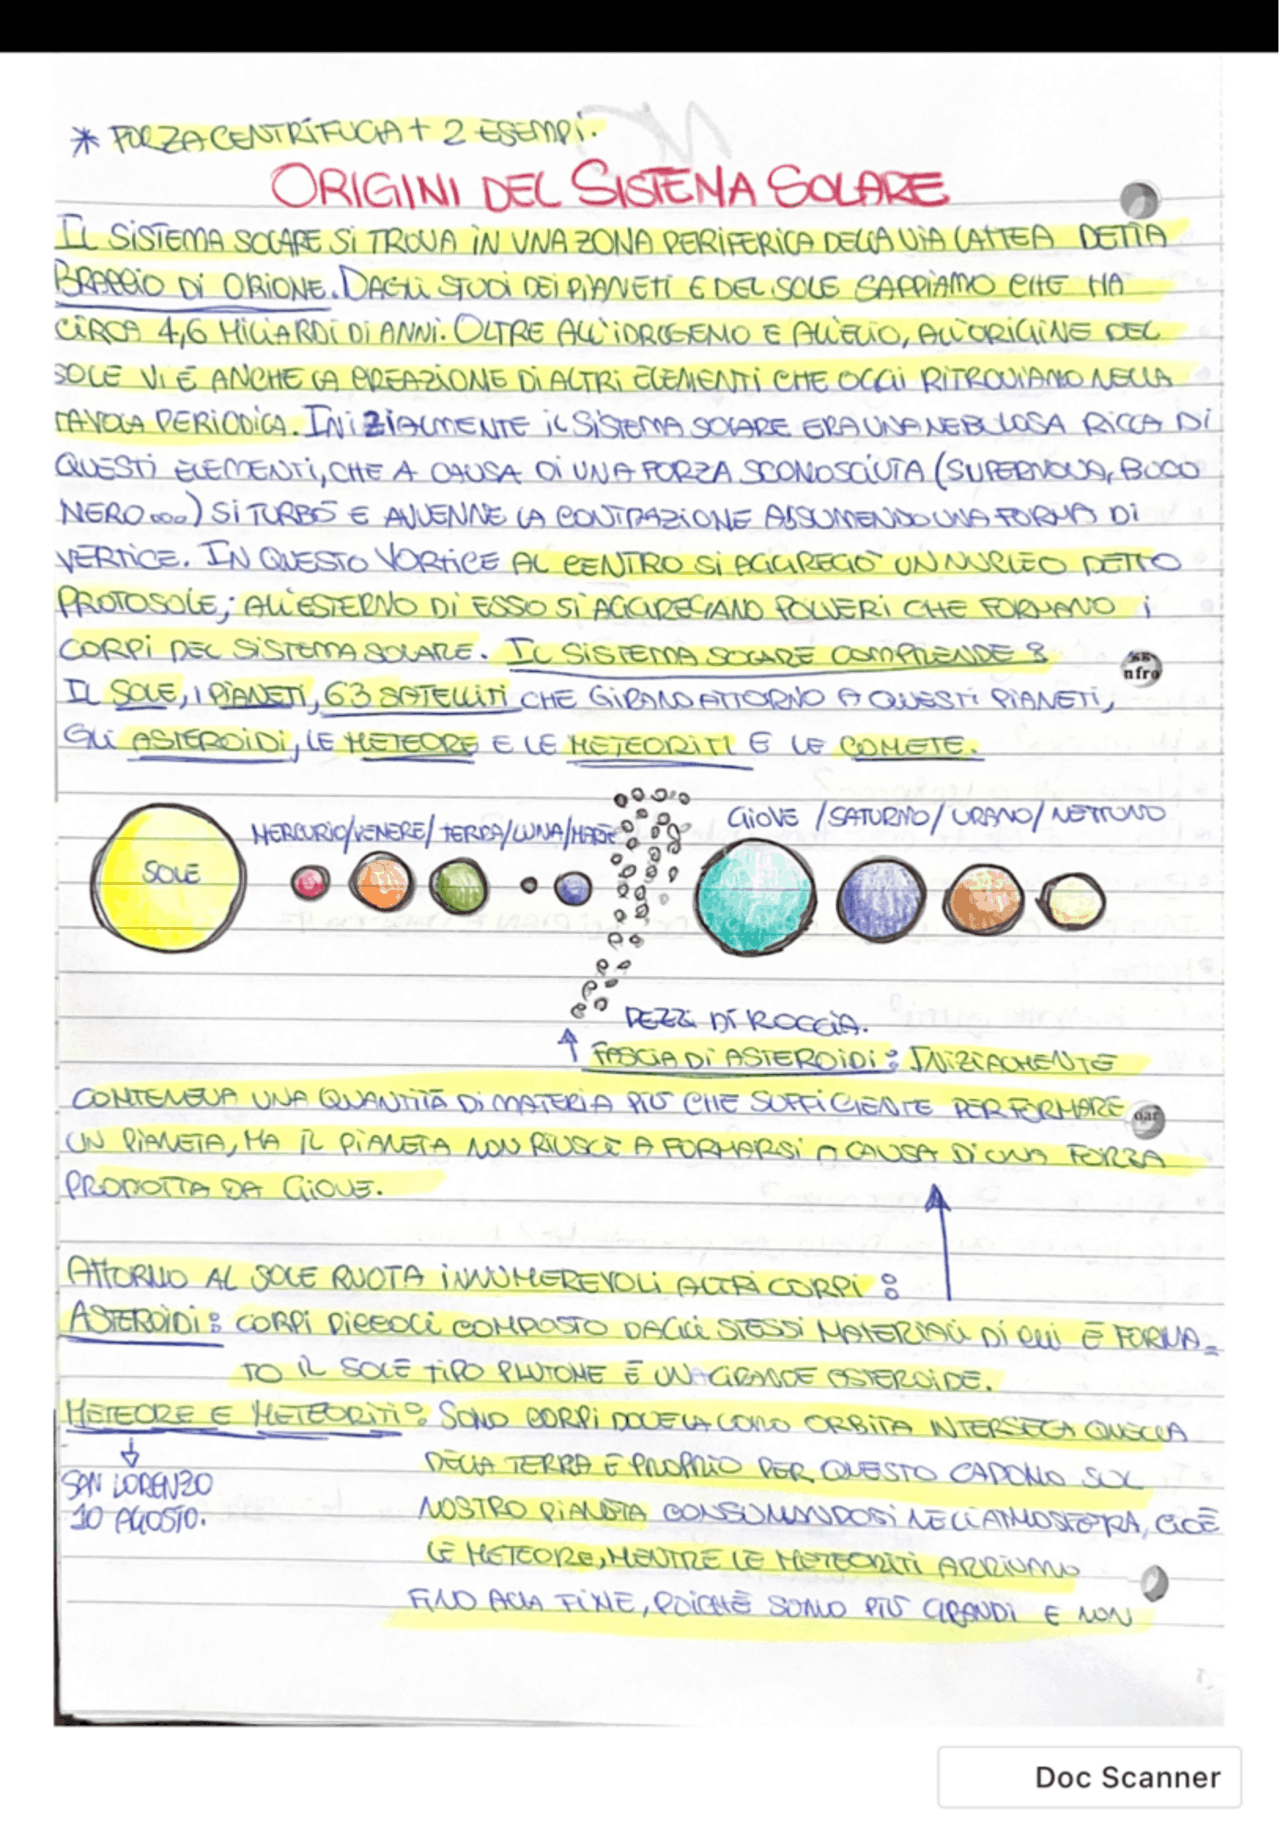 * FORZA CENTRIFUGA + 2 ESEMPI.
ORIGINI DEL SISTEMA SOLARE
IL SISTEMA SOLARE SI TROVA IN UNA ZONA PERIFERICA DELLA VIA LATTEA DETTA
BRACCIO DI ORIONE. DAGLI STUDI DEI PIANETI E DEL SOLE SAPPIAMO CHE HA
CIRCA 4,6 MILIARDI DI ANNI. OLTRE ALL'IDROGENO E ALL'ELIO, ALL'ORIGINE DEL
SOLE VI È ANCHE LA CREAZIONE DI ALTRI ELEMENTI CHE OGGI RITROVIAMO NELLA
TAVOLA PERIODICA. INIZIALMENTE IL SISTEMA SOLARE ERA UNA NEBULOSA RICCA DI
QUESTI ELEMENTI, CHE A CAUSA DI UNA FORZA SCONOSCIUTA (SUPERNOVA, BUCO
NERO...) SI TURBÒ E AVVENNE LA CONTRAZIONE ASSUMENDO UNA FORMA DI
VERTICE. IN QUESTO VORTICE AL CENTRO SI AGGREGÒ UN NUCLEO DETTO
PROTOSOLE; ALL'ESTERNO DI ESSO SI AGGREGANO POLVERI CHE FORMANO i
CORPI DEL SISTEMA SOLARE. IL SISTEMA SOLARE COMPRENDE:
IL SOLE, I PIANETI, 63 SATELLITI CHE GIRANO ATTORNO A QUESTI PIANETI,
GLI ASTEROIDI, LE METEORE E LE METEORITI E LE COMETE.
SOLE
MERCURIO/VENERE/TERRA/LUNA/MARTE
GIOVE /SATURNO/ URANO/ NETTUNO
PEZZI DI ROCCIA.
FASCIA DI ASTEROIDI: INIZIALMENTE
CONTENEVA UNA QUANTITÀ DI MATERIA PIÙ CHE SUFFICIENTE PER FORMARE
UN PIANETA, MA IL PIANETA NON RIUSCÌ A FORMARSI A CAUSA DI UNA FORZA
PRODOTTA DA GIOVE.
ATTORNO AL SOLE RUOTA INNUMEREVOLI ALTRI CORPI:
ASTEROIDI: CORPI PICCOLI COMPOSTO DAGLI STESSI MATERIALI DI CUI È FORMA=
TO IL SOLE TIPO PLUTONE È UN GRANDE ASTEROIDE.
METEORE E METEORITI: SONO CORPI DOVE LA LORO ORBITA INTERSECA QUELLA
DELLA TERRA E PROPRIO PER QUESTO CADONO SUL
SAN LORENZO
10 AGOSTO.
NOSTRO PIANETA CONSUMANDOSI NELL'ATMOSFERA, CIOÈ
LE METEORE, MENTRE LE METEORITI ARRIVANO
FINO ALLA FINE, POICHÈ SONO PIÙ GRANDI E NON
Doc Scanner